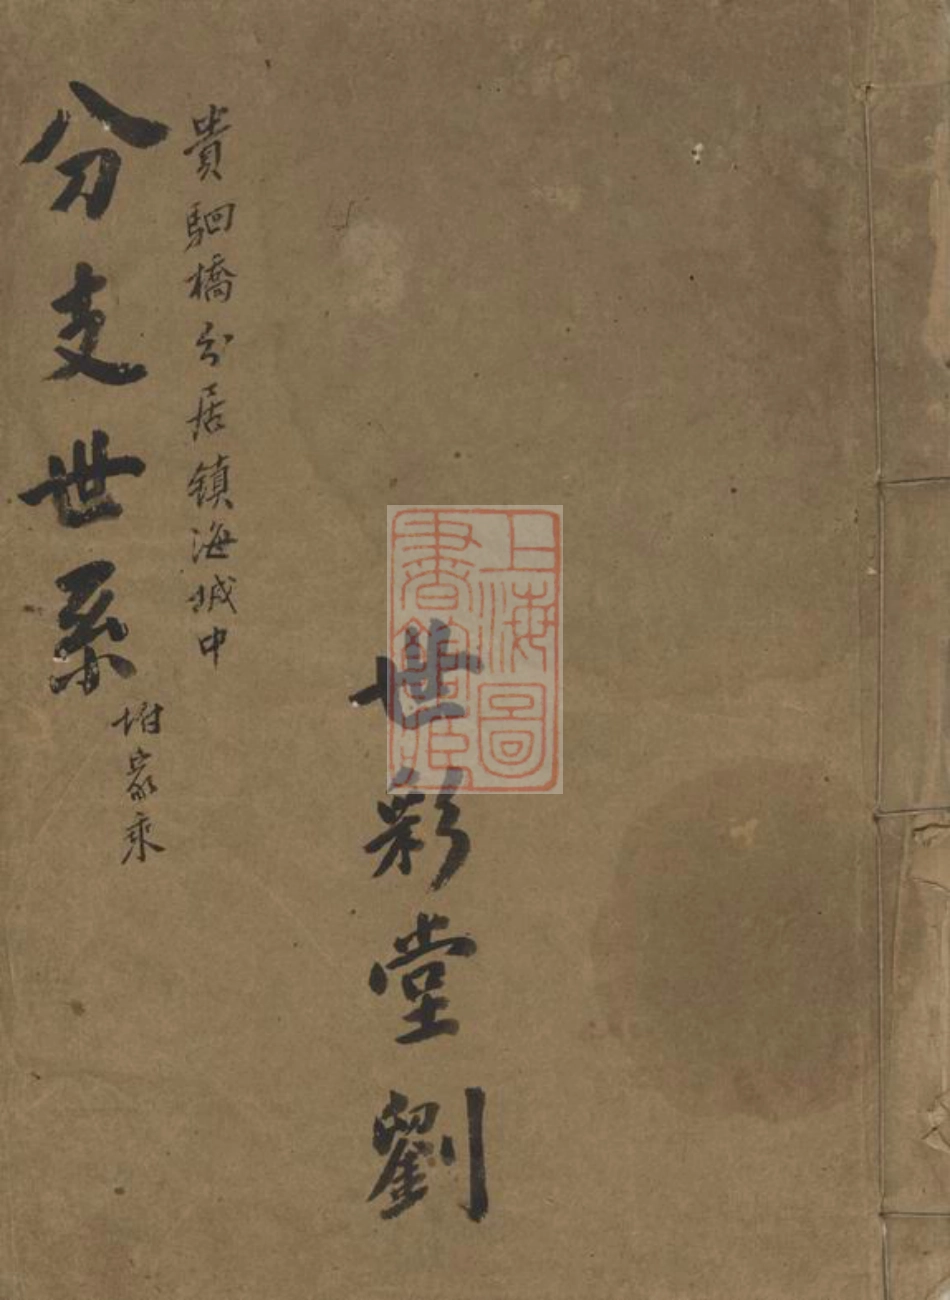 世彩堂劉
貴駟橋分居鎮海城中
分支世系
坿家乘
上海圖書館藏